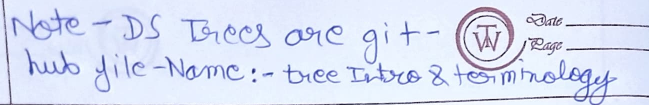 Note - DS Trees are git-
hub file-Name :- tree Intro & terminology
TW
Date
Page